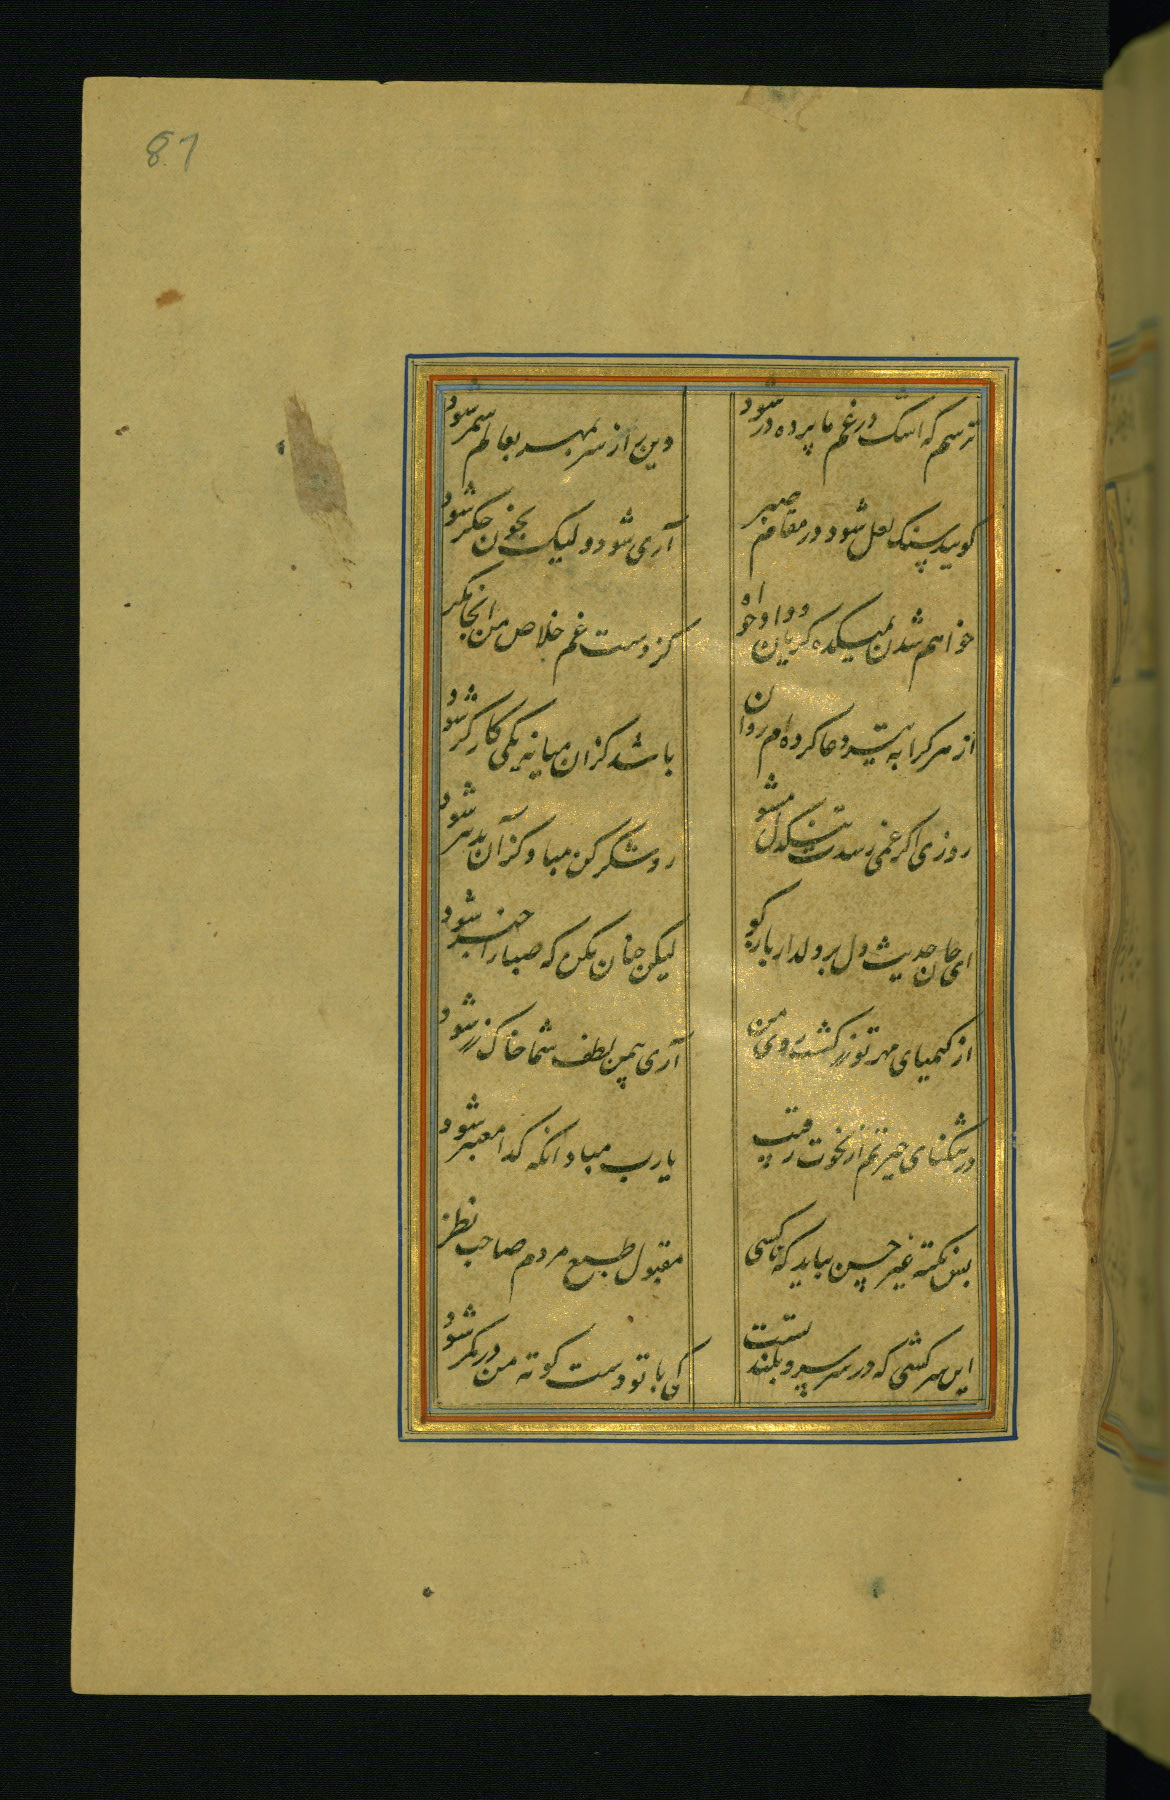 87
ترسم که اشک در غم ما پرده در شود
وین راز سر بمهر بعالم سمر شود
کویند سنک لعل شود در مقام صبر
آری شود ولیک بخون جکر شود
خواهم شدن بمیکده کریان و دادخواه
کز دست غم خلاص من انجا مکر
از هر کرانه تیر دعا کرده ام روان
باشد کزان میانه یکی کارکر شود
روزی اکر غمی رسدت تنکدل مشو
رو شکر کن مباد کز آن بدتر شود
ای جان حدیث دل بر دلدار باز کو
لیکن چنان مکن که صبا را خبر شود
از کیمیای مهر تو زر کشت روی من
آری بیمن لطف شما خاک زر شود
در تنکنای حیرتم از نخوت رقیب
یارب مباد انکه کدا معتبر شود
بس نکته غیر حسن بباید که تا کسی
مقبول طبع مردم صاحب نظر
این سرکشی که در سر سرو بلند تست
کی با تو دست کوته من در کمر شود